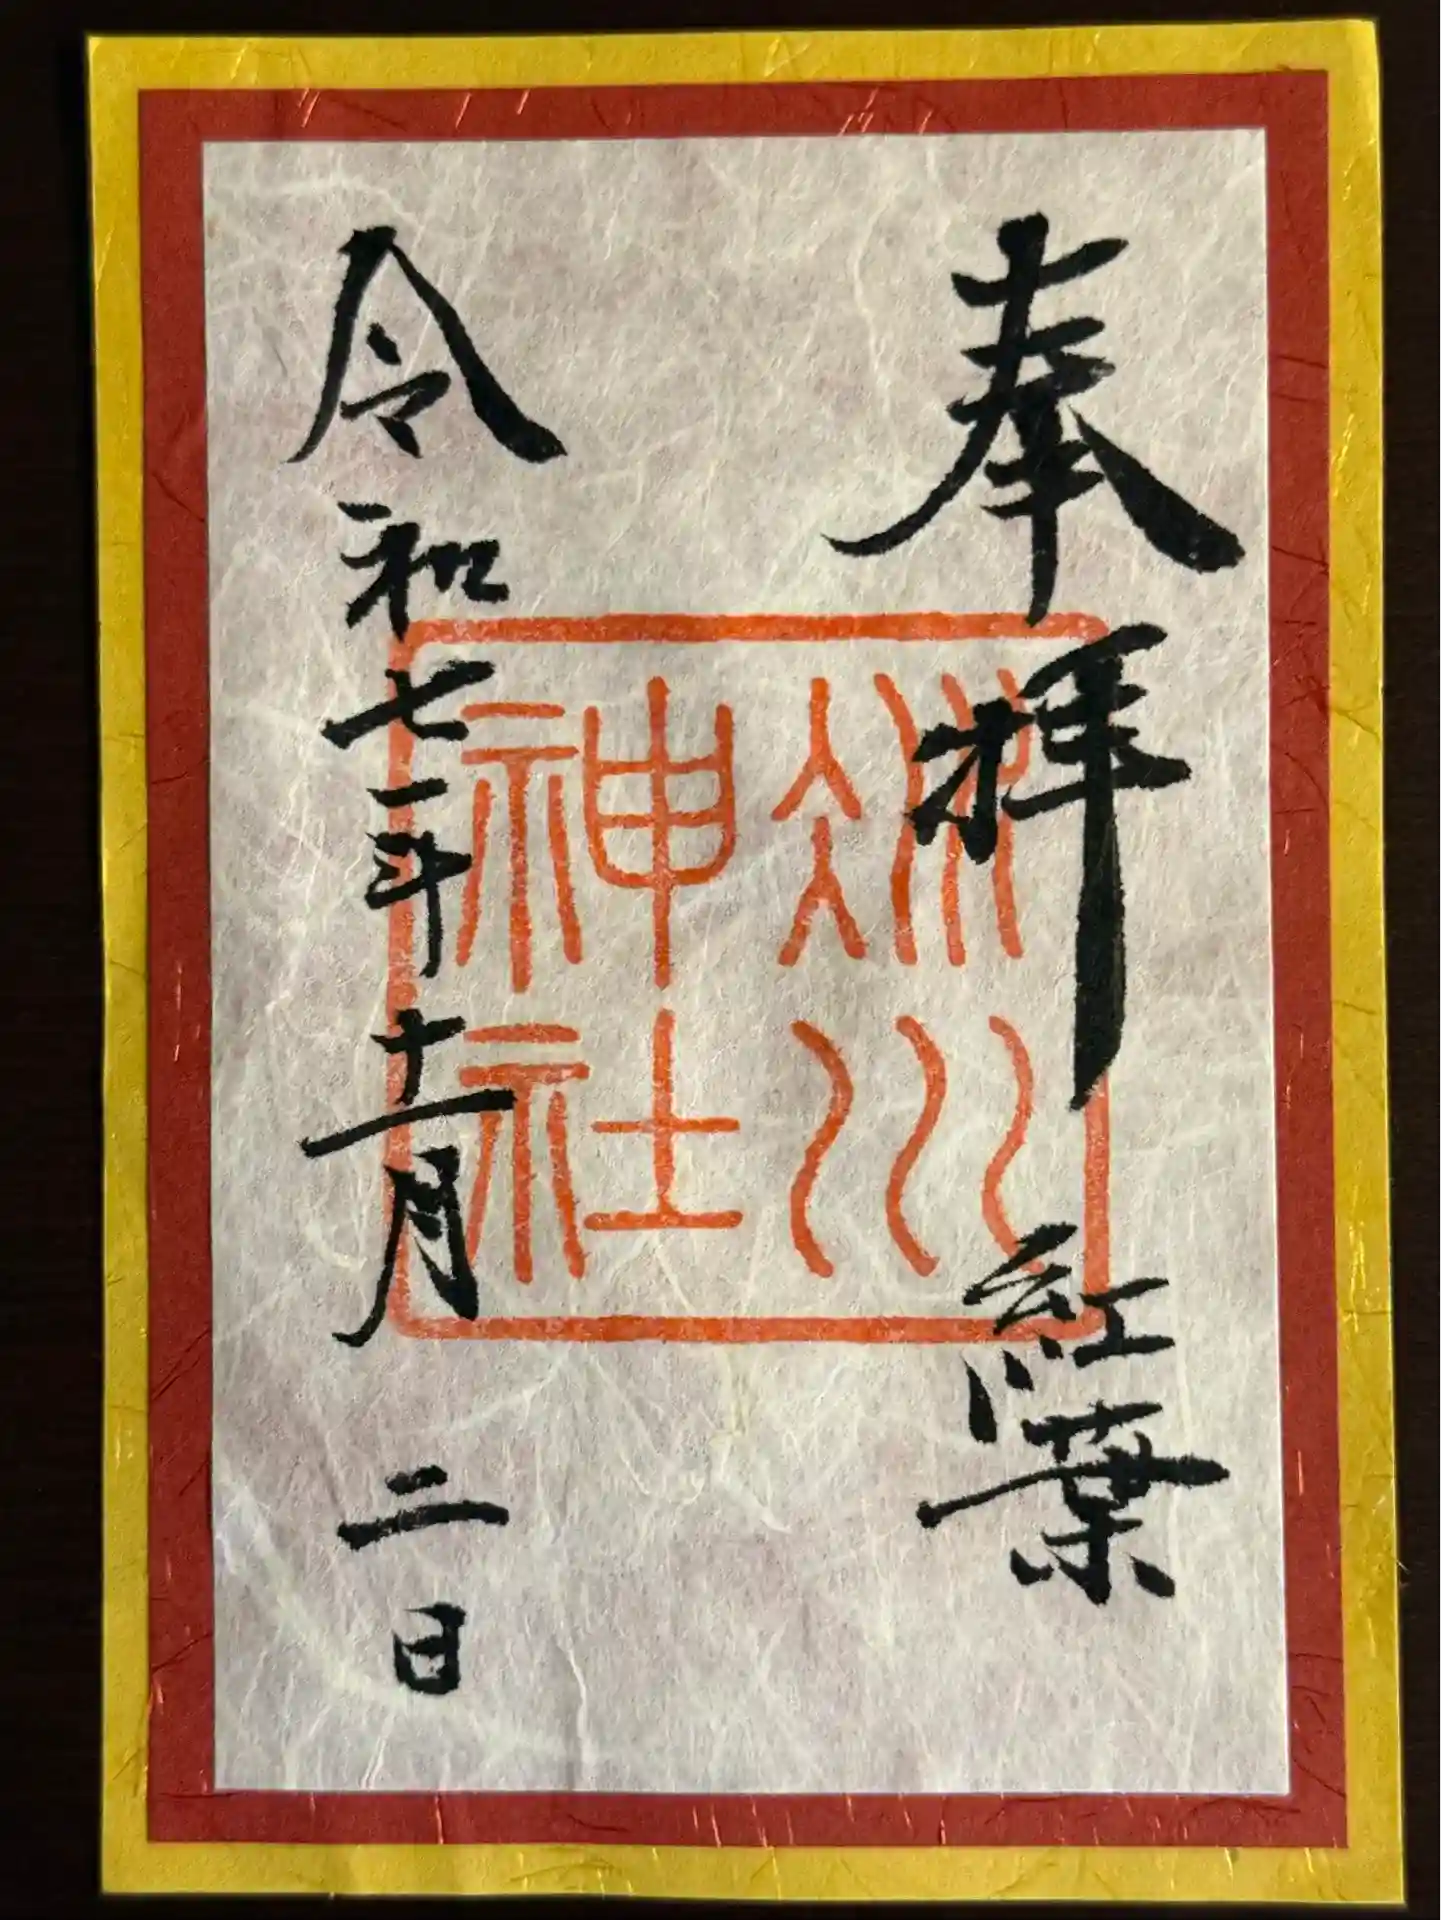 奉拝 紅葉
氷川
神社
令和七年十一月二日